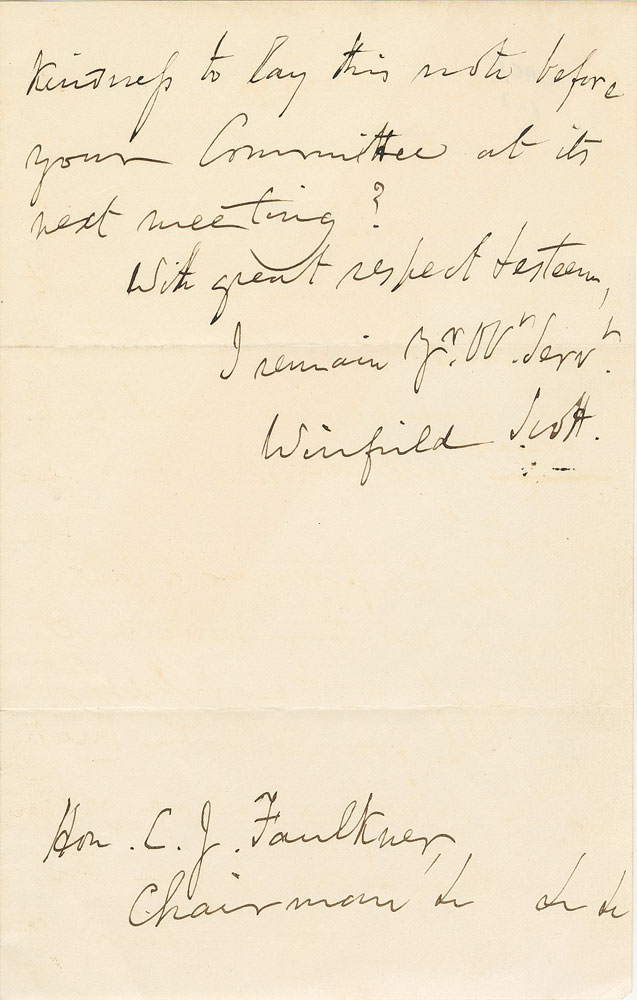 Kindness to lay this note before
your Committee at its
next meeting?
With great respect & esteem,
I remain Yr. Obt. Servt.
Winfield Scott.
Hon. C. J. Faulkner,
Chairman &c &c &c